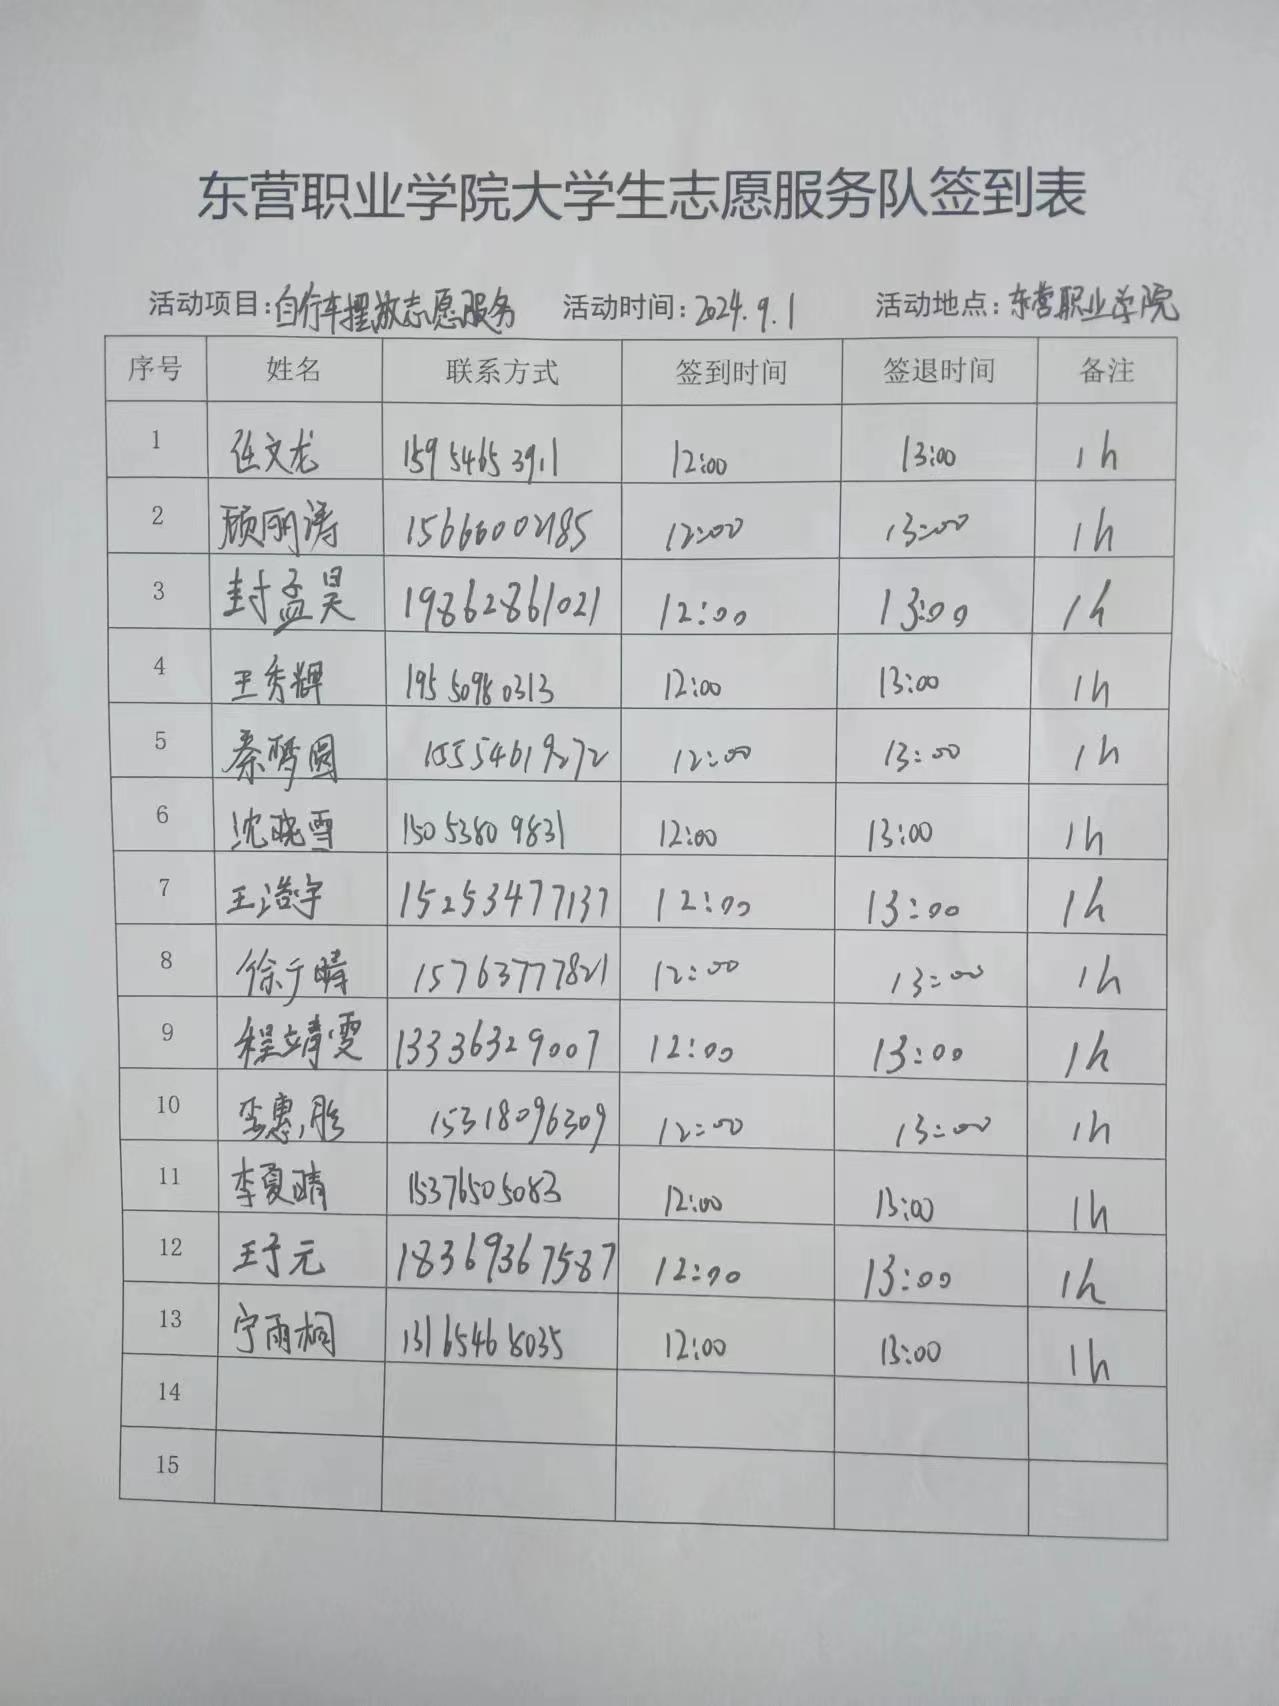 东营职业学院大学生志愿服务队签到表
活动项目:自行车摆放志愿服务 活动时间:2024.9.1 活动地点:东营职业学院
序号 姓名 联系方式 签到时间 签退时间 备注
1 任文龙 159546539.1 12:00 13:00 1h
2 顾丽涛 15666002185 12:00 13:00 1h
3 封孟昊 19862861021 12:00 13:00 1h
4 王秀辉 195 5098 0313 12:00 13:00 1h
5 秦梦圆 15554619272 12:00 13:00 1h
6 沈晓雪 150 5380 9831 12:00 13:00 1h
7 王浩宇 15253477137 12:00 13:00 1h
8 徐广晴 15763777821 12:00 13:00 1h
9 程靖雯 13336329007 12:00 13:00 1h
10 李惠彤 15318096309 12:00 13:00 1h
11 李夏晴 15376505083 12:00 13:00 1h
12 王子元 18369367587 12:00 13:00 1h
13 宁雨桐 13165468035 12:00 13:00 1h
14
15